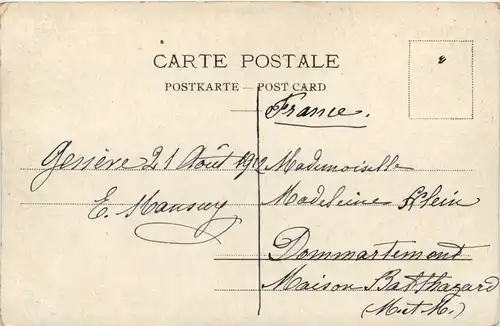 CARTE POSTALE
POSTKARTE — POST CARD
France.
Genève 21 Août 1912
E. Mansuy
Mademoiselle
Madeleine Klein
Dommartemont
Maison Balthazard
(M.et M.)